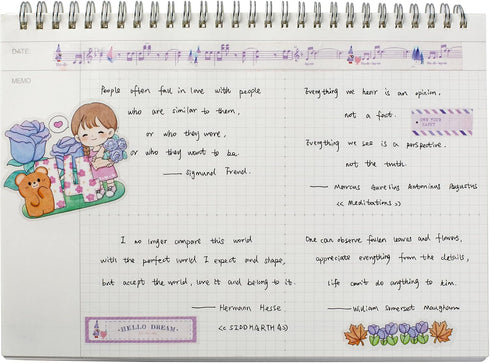 DATE:
MEMO
People often fall in love with people
who are similar to them,
or who they were,
or who they want to be.
—— Sigmund Freud.
Everything we hear is an opinion,
not a fact.
Everything we see is a perspective,
not the truth.
—— Marcus Aurelius Antoninus Augustus
<< Meditations >>
I no longer compare this world
with the perfect world I expect and shape,
but accept the world, love it and belong to it.
—— Hermann Hesse
<< SIDDHARTHA >>
One can observe fallen leaves and flowers,
appreciate everything from the details,
life can't do anything to him.
—— William Somerset Maugham
·HELLO DREAM·